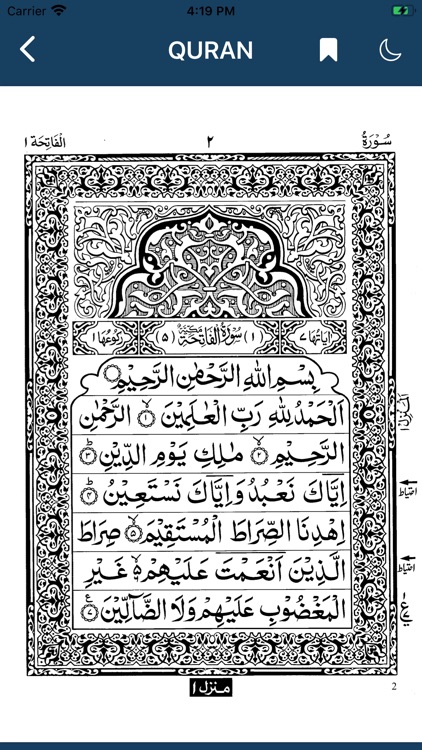 Carrier 4:19 PM
QURAN
سُوْرَةُ ٢ اَلْفَاتِحَة ١
اٰيَاتُهَا ٧ (١) سُوْرَةُ الْفَاتِحَةِ مَكِّيَّةٌ (٥) رُكُوْعُهَا ١
بِسْمِ اللّٰهِ الرَّحْمٰنِ الرَّحِيْمِ
اَلْحَمْدُ لِلّٰهِ رَبِّ الْعٰلَمِيْنَ ١ الرَّحْمٰنِ
الرَّحِيْمِ ٢ مٰلِكِ يَوْمِ الدِّيْنِ ٣ ط
اِيَّاكَ نَعْبُدُ وَاِيَّاكَ نَسْتَعِيْنُ ٤ ط
اِهْدِنَا الصِّرَاطَ الْمُسْتَقِيْمَ ٥ صِرَاطَ
الَّذِيْنَ اَنْعَمْتَ عَلَيْهِمْ ٦ غَيْرِ
الْمَغْضُوْبِ عَلَيْهِمْ وَلَا الضَّآلِّيْنَ ٧ ع
اَلْمَنْزِل ١
احتياط
احتياط
منزل ١
2